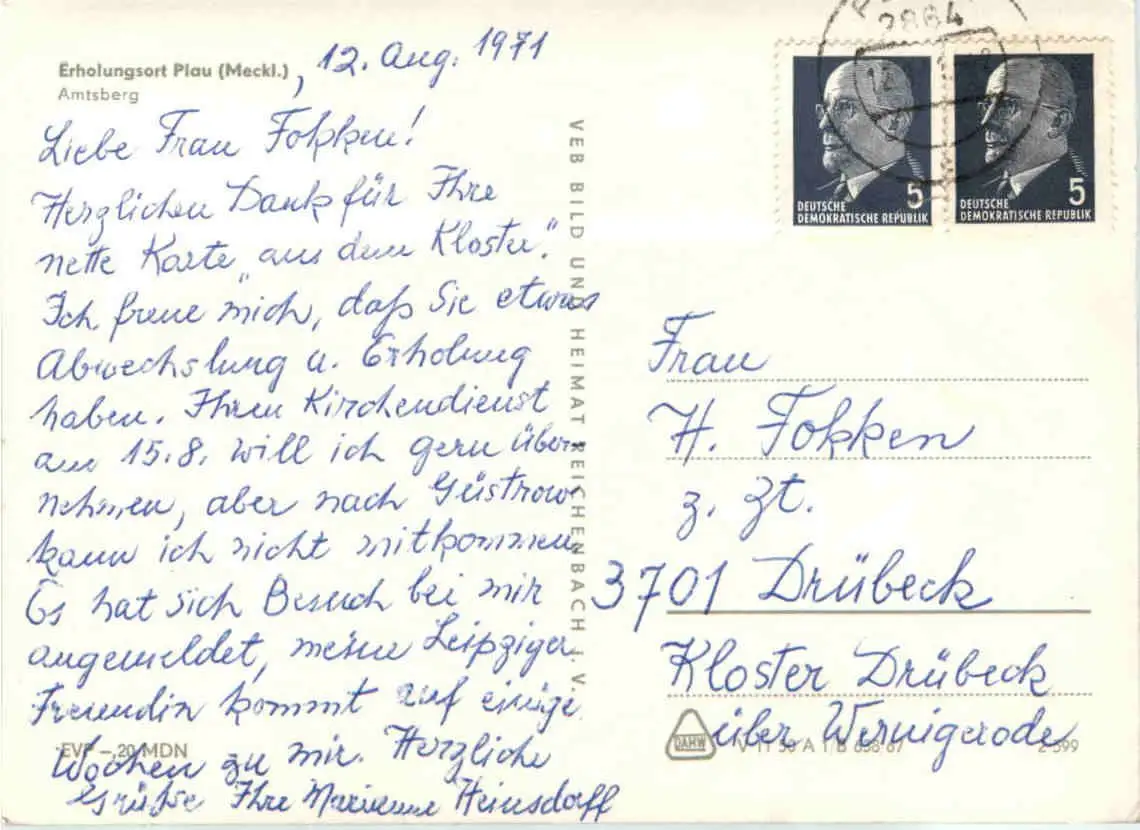 Erholungsort Plau (Meckl.)
Amtsberg
, 12. Aug. 1971
Liebe Frau Fokken!
Herzlichen Dank für Ihre
nette Karte „aus dem Kloster“.
Ich freue mich, daß Sie etwas
Abwechslung u. Erholung
haben. Ihren Kirchendienst
am 15.8. will ich gern über-
nehmen, aber nach Güstrow
kann ich nicht mitkommen.
Es hat sich Besuch bei mir
angemeldet, meine Leipziger
Freundin kommt auf einige
Wochen zu mir. Herzliche
Grüße Ihre Marianne Heinsdorff
EVP –,20 MDN
VEB BILD UND HEIMAT REICHENBACH I. V.
2864
12
DEUTSCHE
DEMOKRATISCHE REPUBLIK
5
DEUTSCHE
DEMOKRATISCHE REPUBLIK
5
Frau
H. Fokken
z. Zt.
3701 Drübeck
Kloster Drübeck
über Wernigerode
DAHW
V 11 50 A 1/B 638/67
2 599